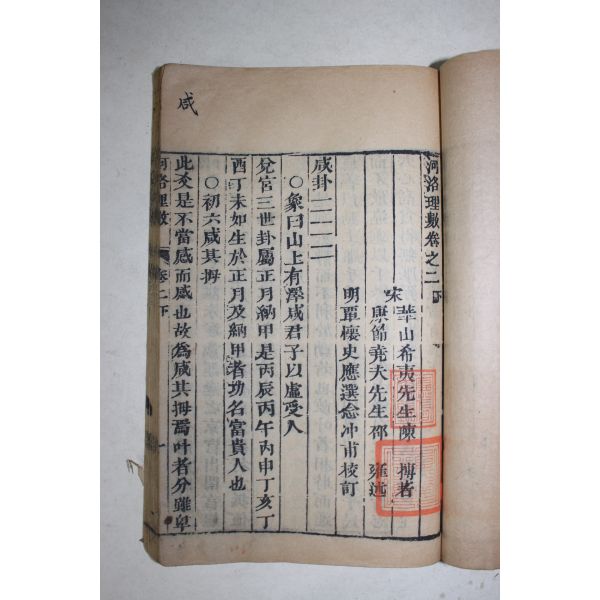 咸
河洛理數卷之二下
宋 華山希夷先生陳 摶著
康節堯夫先生邵 雍述
明單懷史應選念冲甫校訂
咸卦
○象曰山上有澤咸君子以虛受人
兌宮三世卦屬正月納甲是丙辰丙午丙申丁亥丁
酉丁未如生於正月及納甲者功名富貴人也
○初六咸其拇
此爻是不當感而感也故為咸其拇焉叶者分雖卑
河洛理數 卷二下 一